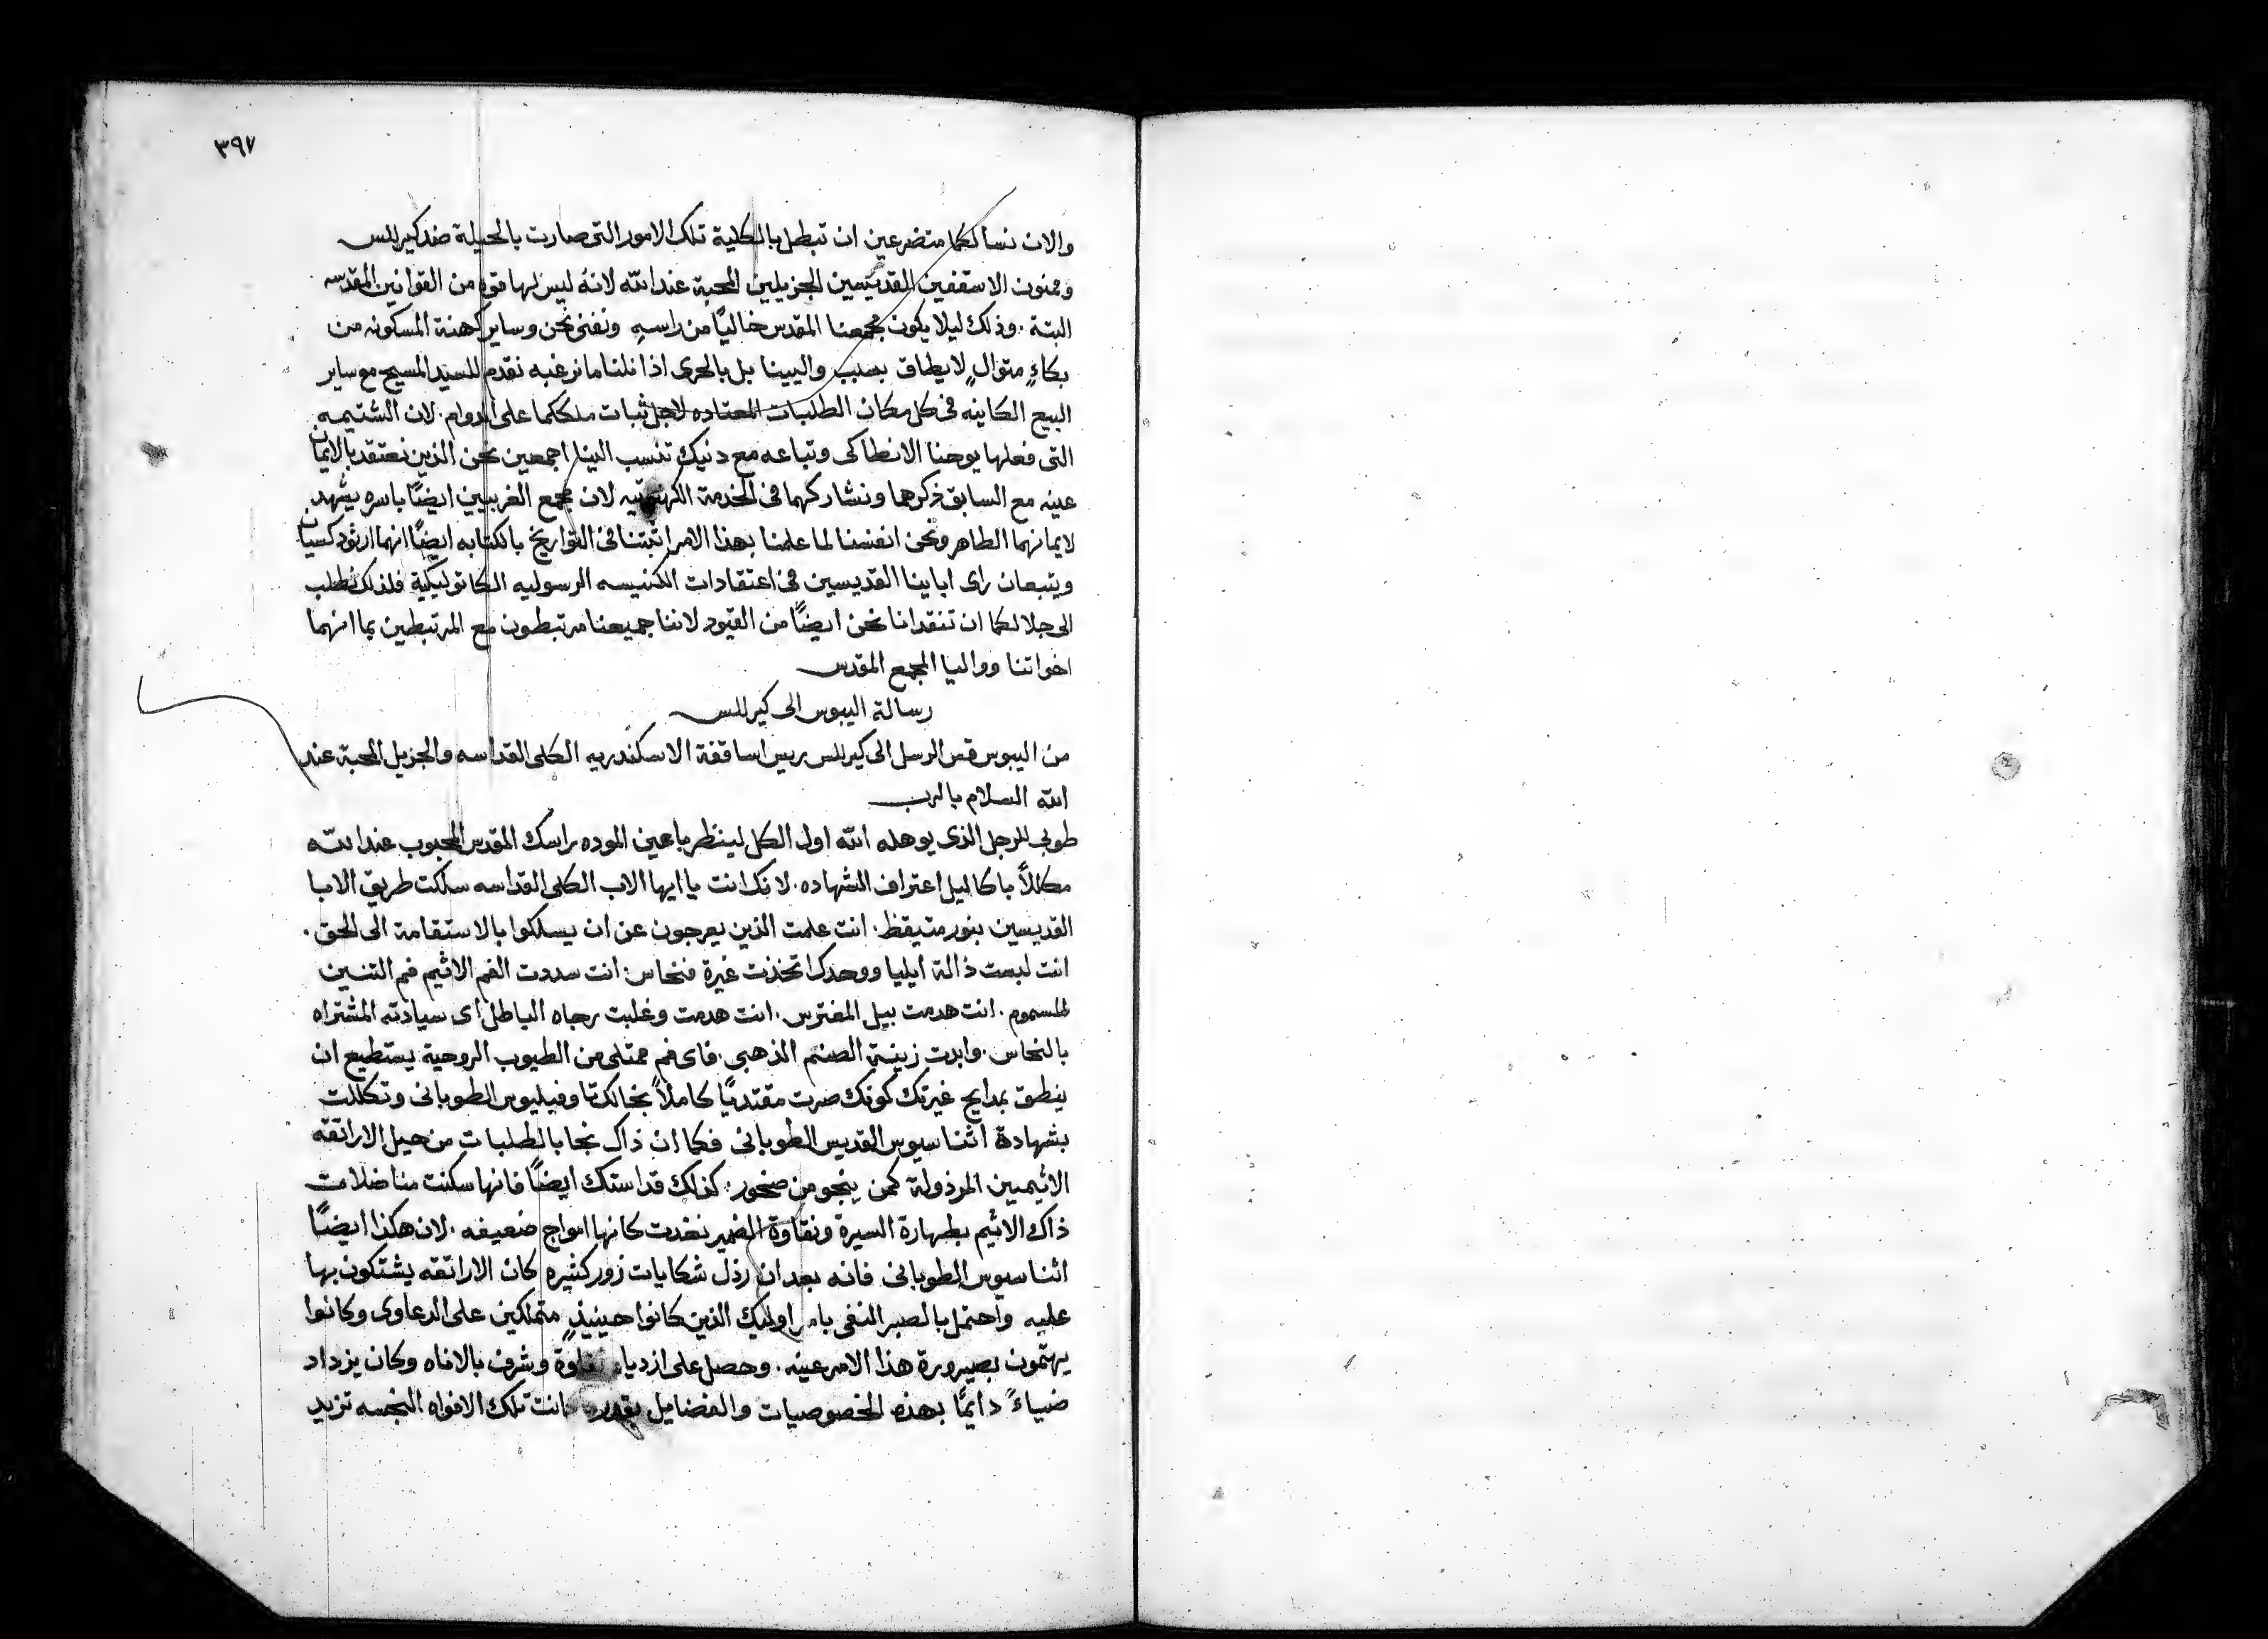 ٣٩٧
والان نسالكما متضرعين ان تبطل بالكلية تلك الامور التى صارت بالحيلة ضد كيرللس
وممنون الاسقفين القديسين الجزيلين المحبة عند الله لانه ليس لها قوه من القوانين المقدسه
البتة . وذلك ليلا يكون مجمعنا المقدس خاليًا من راسهِ ونفنى نحن وساير كهنة المسكونه من
بكاءٍ متوالٍ لا يطاق بسبب والبينا بل بالحرى اذا نلنا ما نرغبه نقدم للسيد المسيح مع ساير
البيع الكاينه فى كل مكان الطلبات المعتاده لاجل ثبات ملككما على الدوام . لان الشتيمه
التى فعلها يوحنا الانطاكى وتباعه مع دنيك تنسب الينا اجمعين نحن الذين نعتقد بالايمان
عينه مع السابق ذكرهما ونشاركهما فى الخدمة الكهنوتيه لان مجمع الغربيين ايضًا باسره يشهد
لايمانهما الطاهر ونحن انفسنا لما علمنا بهذا الامر اثبتنا فى التواريخ بالكتابه ايضًا انهما ارثودكسيان
ويتبعان راى اباينا القديسين فى اعتقادات الكنيسه الرسوليه الكاتوليكية فلذلك نطلب
الى جلالكما ان تنقدانا نحن ايضًا من القيود لاننا جميعنا مرتبطون مع المرتبطين بما انهما
اخواتنا وواليا المجمع المقدس
رسالة اليبوس الى كيرللس
من اليبوس قس الرسل الى كيرللس ريس اساقفة الاسكندريه الكلى القداسه والجزيل المحبة عند
الله السلام بالرب
طوبى للرجل الذى يوهله الله اول الكل لينظر باعين الموده راسك المقدس المحبوب عند الله
مكللاً باكاليل اعتراف الشهاده . لانك انت يا ايها الاب الكلى القداسه سلكت طريق الابا
القديسين بنور متيقظ . انت علمت الذين يعرجون عن ان يسلكوا بالاستقامة الى الحق .
انت لبست ذالة ايليا ووحدك اتخذت غيرة فنحاس : انت سددت الفم الاثيم فم التنين
المسموم . انت هدمت بيل المفترس . انت هدمت وغلبت رجاه الباطل اى سيادته المشتراه
بالنحاس . وابدت زينة الصنم الذهبى . فاى فم ممتلى من الطيوب الروحية يستطيع ان
ينطق بمدايح غيرتك كونك صرت مقتديًا كاملاً بخالك تاوفيليوس الطوبانى وتكللت
بشهادة اثناسيوس القديس الطوبانى فكما ان ذاك نجا بالطلبات من حيل الاراتقه
الاثيميين المرذولة كمن ينجو من صخور : كذلك قداستك ايضًا فانها سكنت مناضلات
ذاك الاثيم بطهارة السيرة ونقاوة الضمير نغدت كانها امواج ضعيفه . لان هكذا ايضًا
اثناسيوس الطوبانى فانه بعد ان رذل شكايات زور كثيره كان الاراتقه يشتكون بها
عليه واحتمل بالصبر النفى بامر اوليك الذين كانوا حينيذٍ متملكين على الدعاوى وكانوا
يهتمون بصيرورة هذا الامر عينه . وحصل على ازدياد نقاوة وشرف بالاناه وكان يزداد
ضياءً دايمًا بهذه الخصوصيات والفضايل بقدر ما كانت تلك الافواه النجسه تزيد